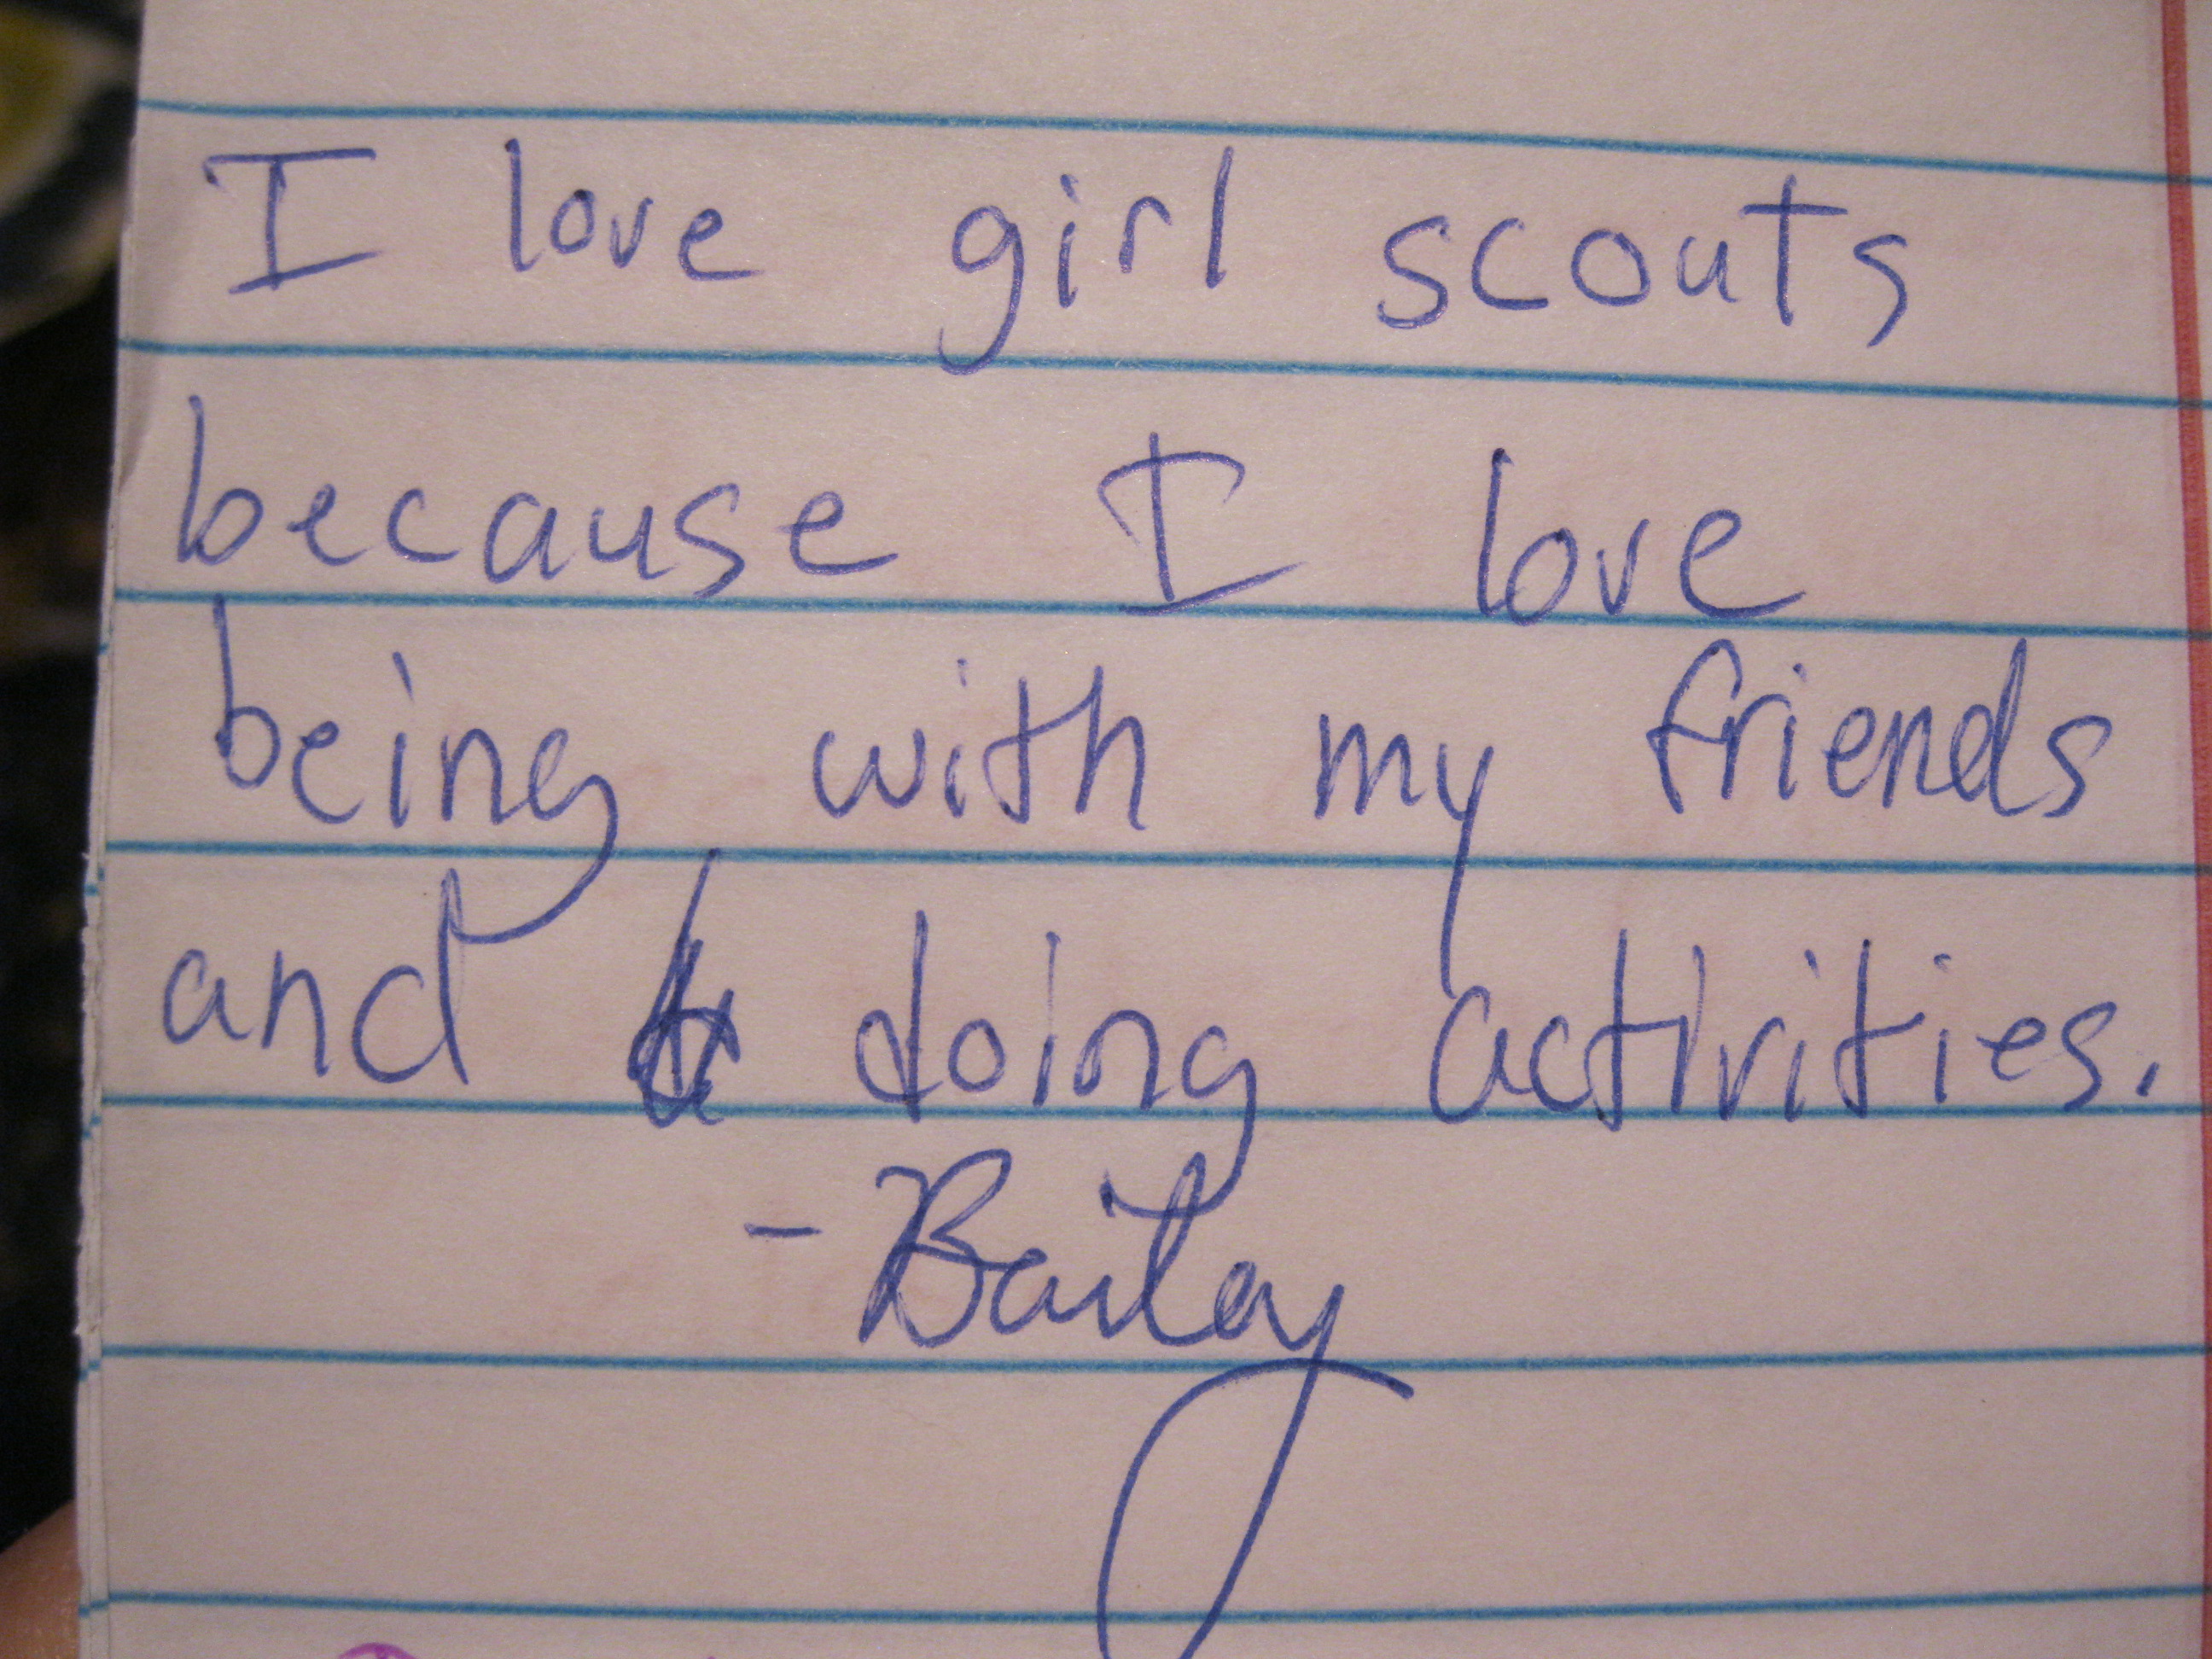 I love girl scouts
because I love
being with my friends
and doing activities.
- Bailey